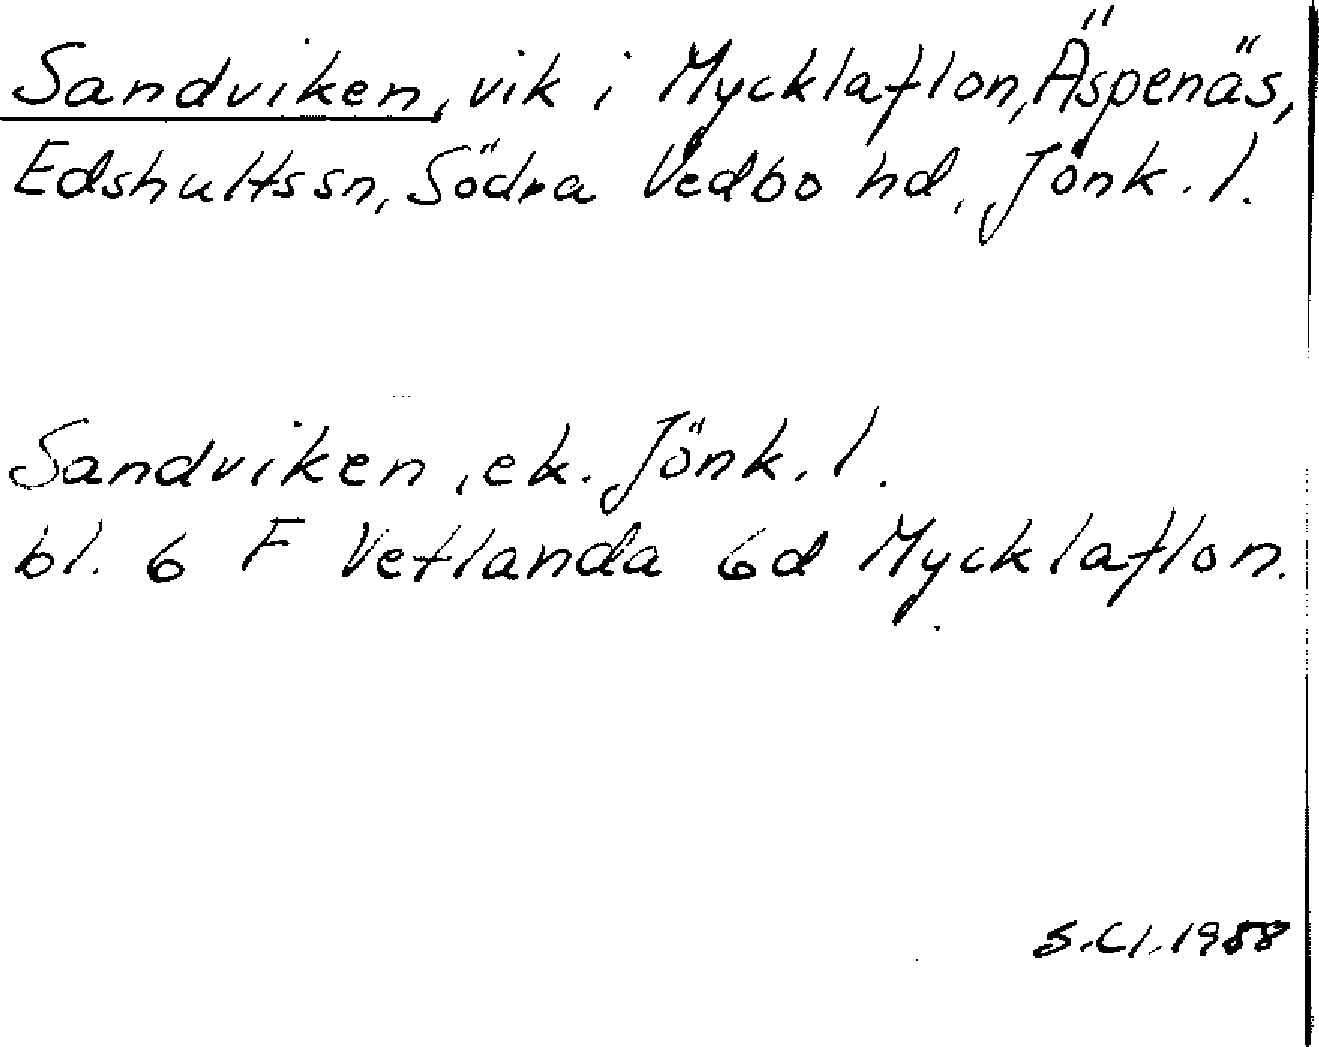 Sandviken, vik i Mycklaflon, Äspenäs,
Edshults sn, Södra Vedbo hd, Jönk. l.
Sandviken, ek. Jönk. l.
bl. 6 F Vetlanda 6d Mycklaflon.
S.Cl. 1988